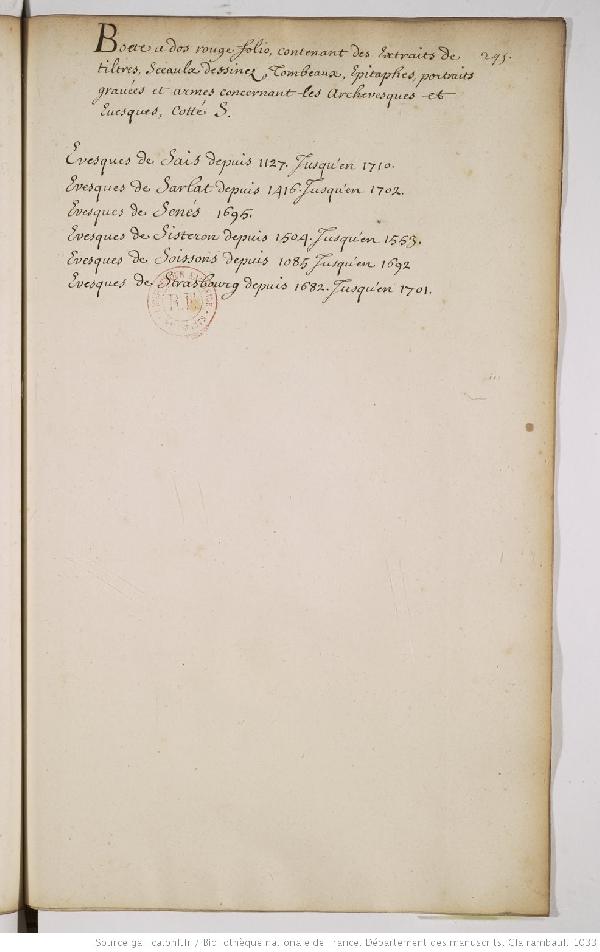 Boete a dos rouge folio, contenant des Extraits de 295.
tiltres, Sceaulx dessinez, Tombeaux, Epitaphes, portraits
gravées et armes concernant les Archevesques et
Evesques, Cotté S.
Evesques de Sais depuis 1127. Jusqu'en 1710.
Evesques de Sarlat depuis 1416. Jusqu'en 1702.
Evesques de Senés 1695.
Evesques de Sisteron depuis 1504. Jusqu'en 1553.
Evesques de Soissons depuis 1085 Jusqu'en 1692
Evesques de Strasbourg depuis 1682. Jusqu'en 1701.
R.F.
Source gallica.bnf.fr / Bibliothèque nationale de France. Département des manuscrits. Clairambault 1033